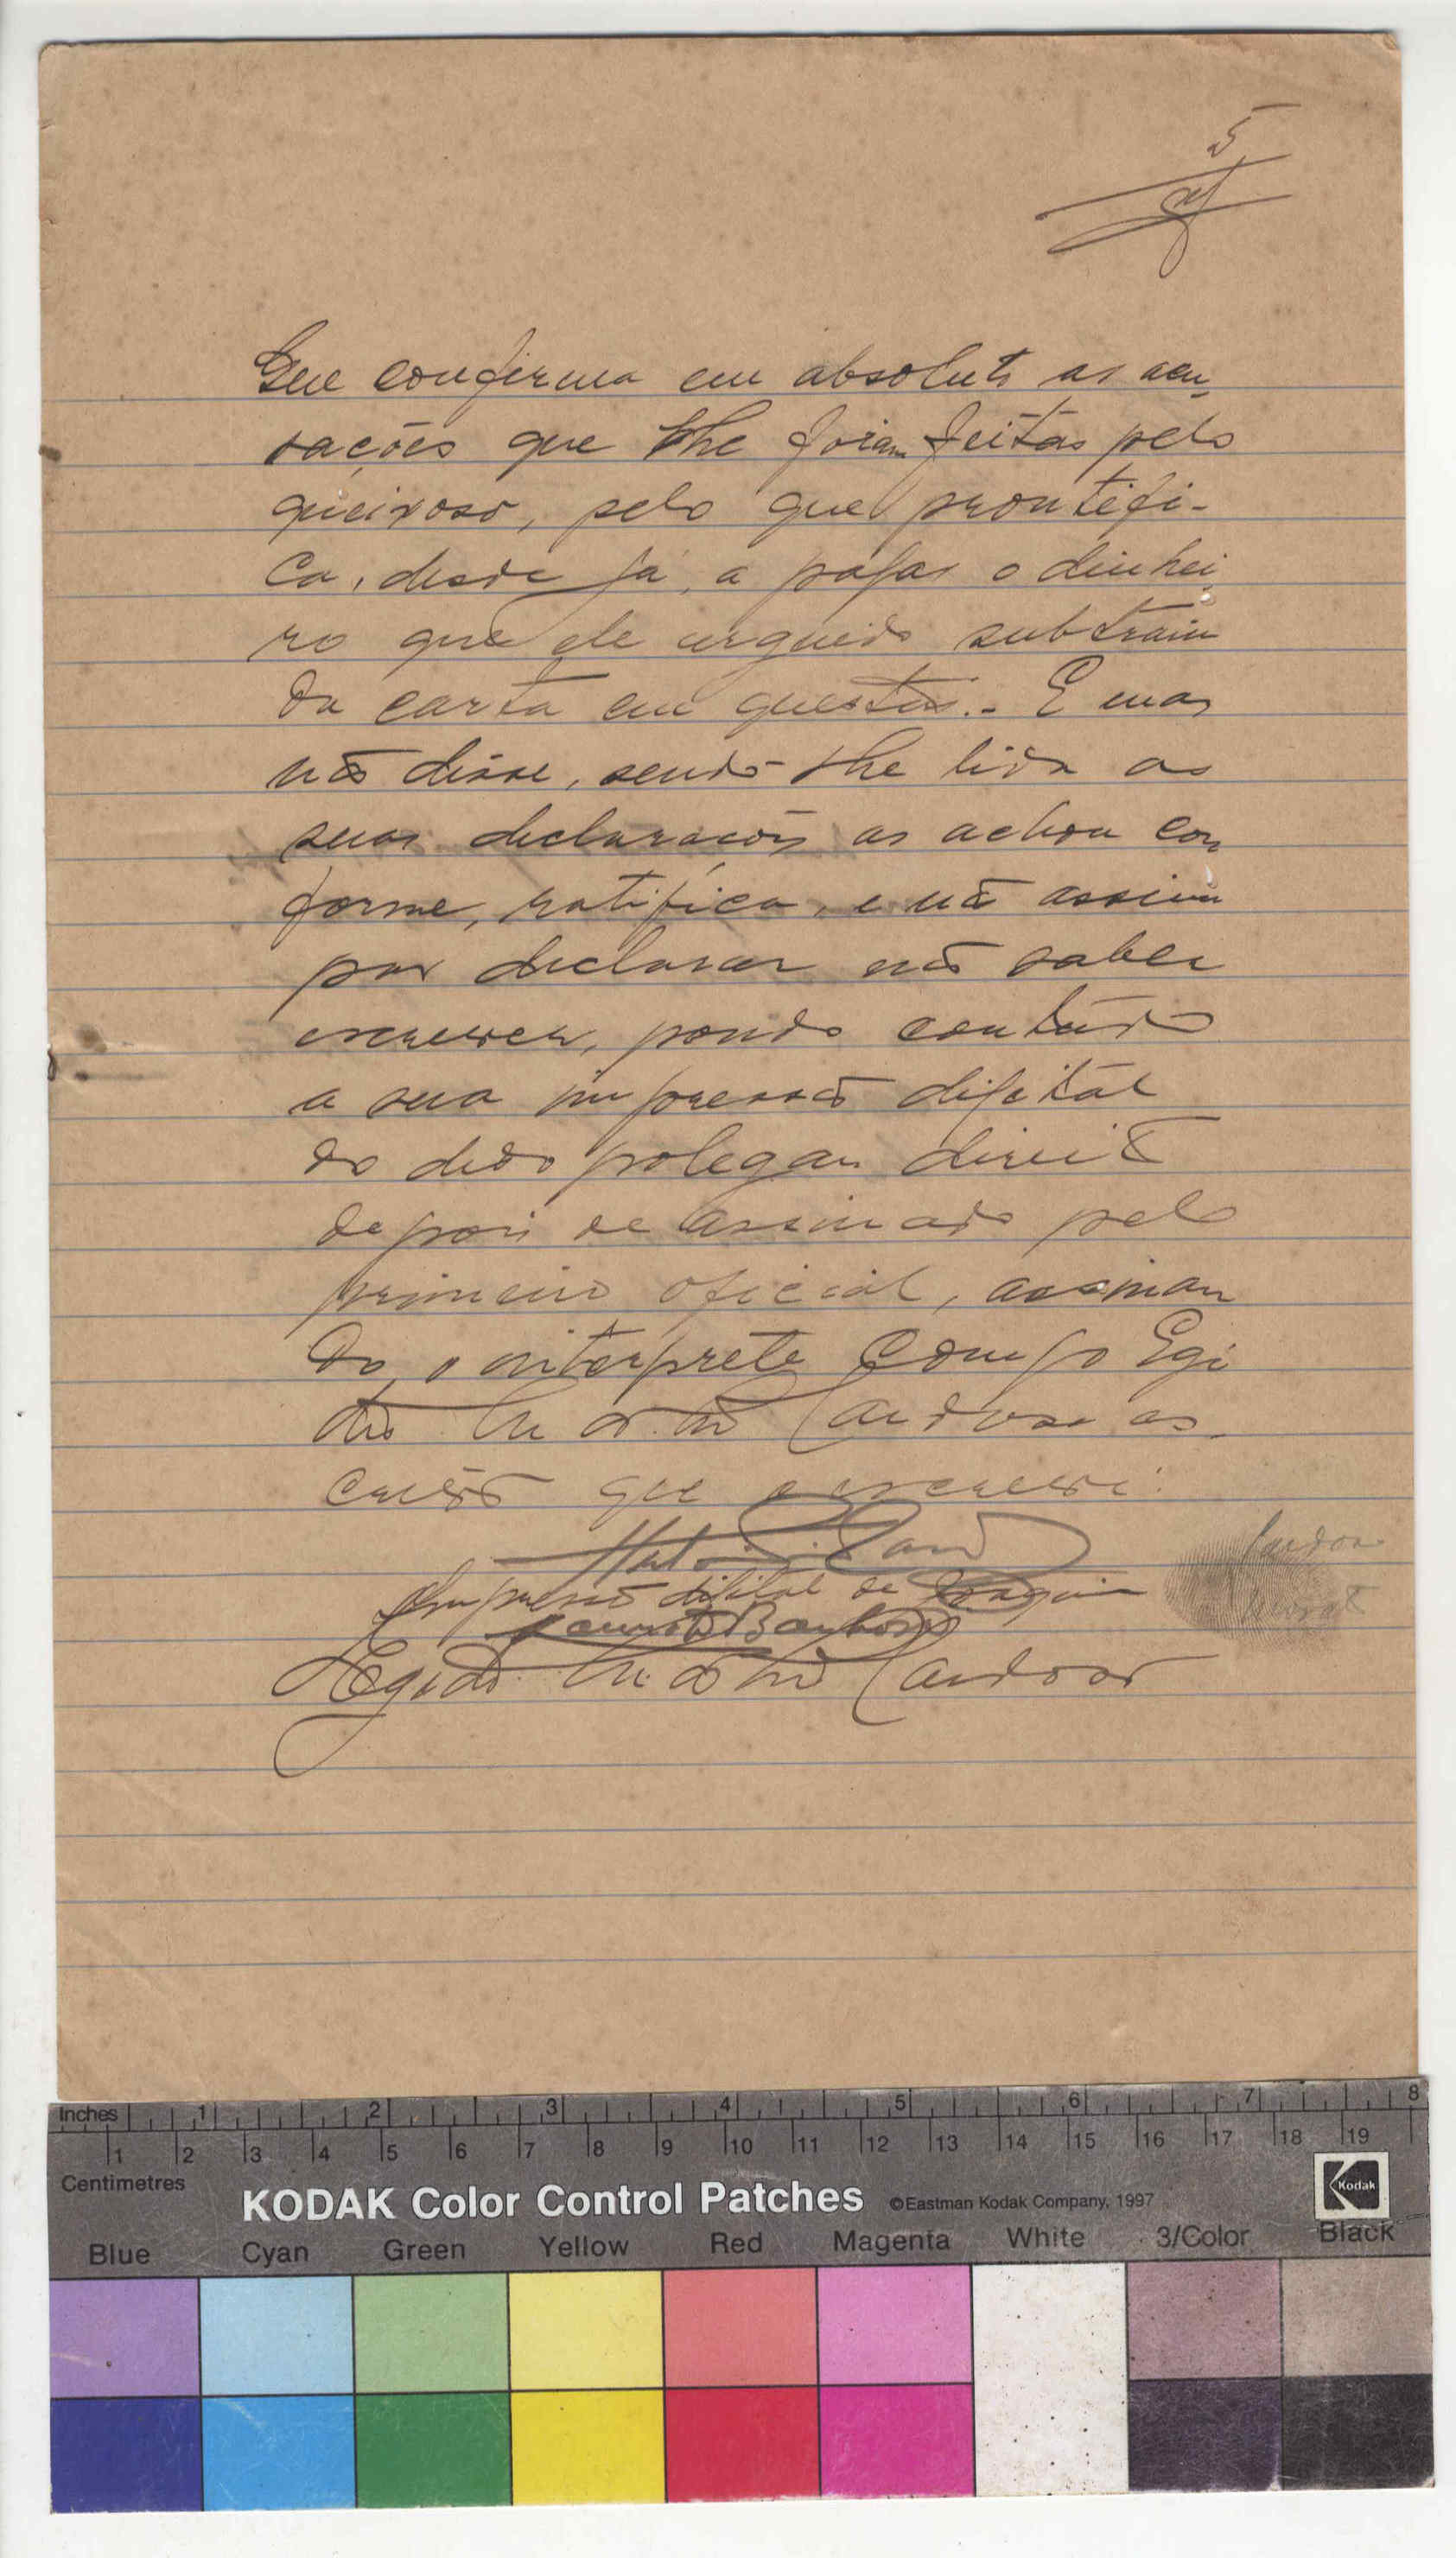 5
Que confirma em absoluto as acu-
sações que lhe foram feitas pelo
queixoso, pelo que prontifi-
ca, desde já, a pagar o dinhei
ro que ele arguido subtraiu
da carta em questão.- E mais
não disse, sendo-lhe lida as
suas declarações as achou con
forme, ratifica, e não assina
por declarar não saber
escrever, pondo contudo
a sua impressão digital
do dedo polegar direito
depois de assinado pelo
primeiro oficial, assinan
do, o intérprete comigo Egi
dio Cardoso es-
crivão que o escrevi.
Impressão digital de Joaquim
Barbosa
Egidio Cardoso
Inches 1 2 3 4 5 6 7 8
1 2 3 4 5 6 7 8 9 10 11 12 13 14 15 16 17 18 19
Centimetres
KODAK Color Control Patches ©Eastman Kodak Company, 1997 Kodak
Blue Cyan Green Yellow Red Magenta White 3/Color Black